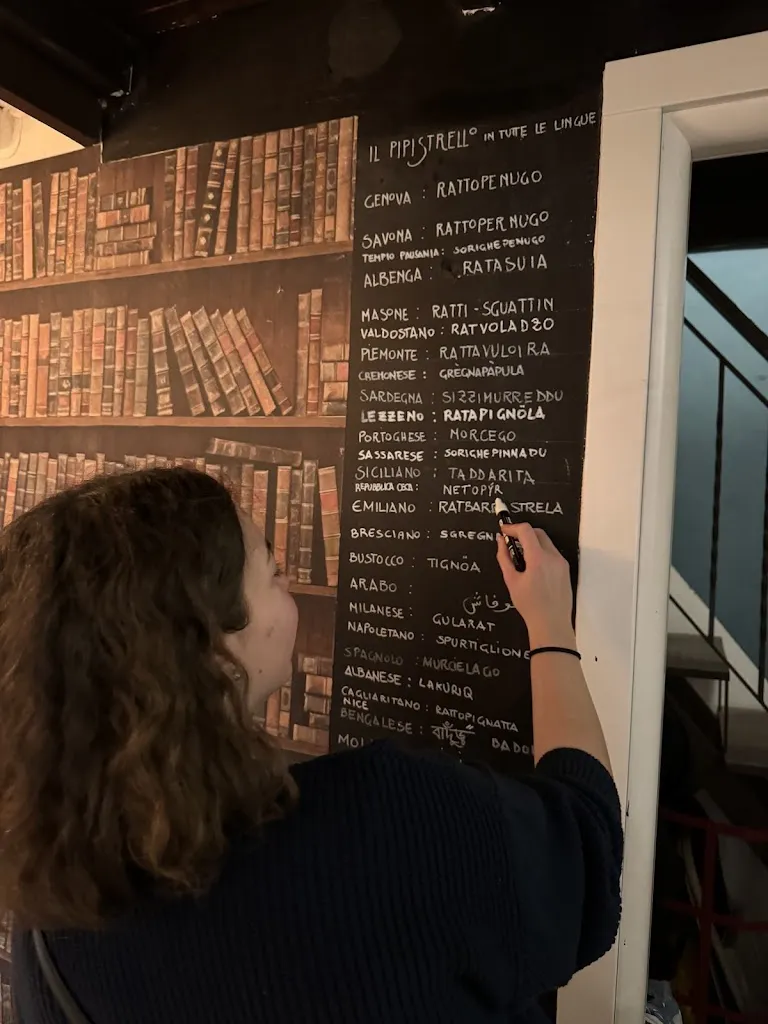 IL PIPISTRELLO IN TUTTE LE LINGUE
GENOVA : RATTOPENUGO
SAVONA : RATTOPERNUGO
TEMPIO PAUSANIA: SORIGHEPENUGO
ALBENGA : RATASUIA
MASONE : RATTI-SGUATTIN
VALDOSTANO : RATVOLADZO
PIEMONTE : RATTAVULOIRA
CREMONESE : GRËGNAPÀPULA
SARDEGNA : SIZZIMURREDDU
LEZZENO : RATAPIGNÖLA
PORTOGHESE : MORCEGO
SASSARESE : SORICHEPINNADU
SICILIANO : TADDARITA
REPUBBLICA CECA: NETOPÝR
EMILIANO : STRELA
BRESCIANO :
BUSTOCCO : TIGNÖA
ARABO :
MILANESE : GULARAT
NAPOLETANO : SPURTIGLIONE
SPAGNOLO : MURCELAGO
ALBANESE : LAKURIQ
CAGLIARITANO : RATTOPIGNATTA
NICE
BENGALESE :